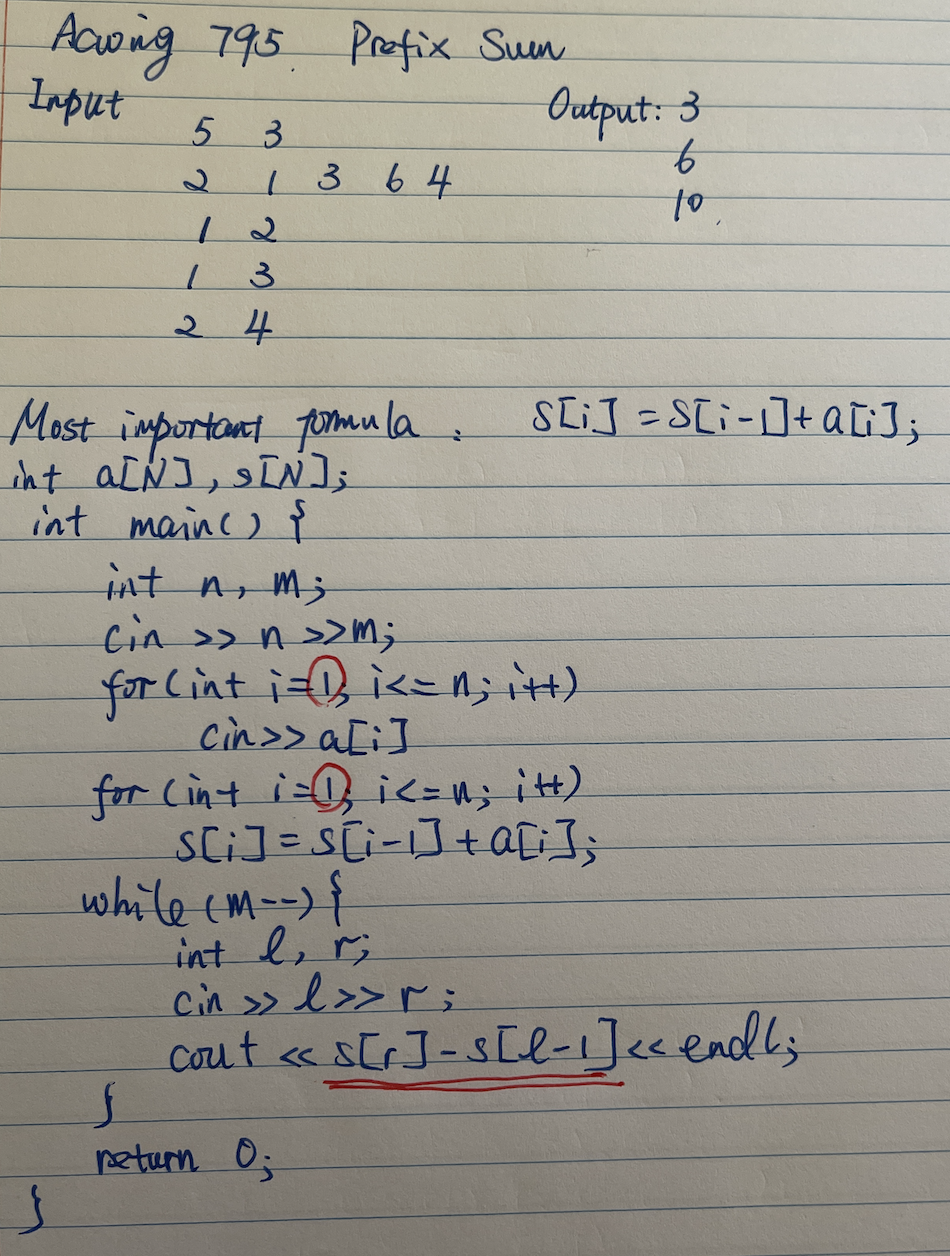 Acwing 795. Prefix Sum
Input
Output: 3
6
10.
5 3
2 1 3 6 4
1 2
1 3
2 4
Most important formula: S[i] = S[i-1] + a[i];
int a[N], s[N];
int main() {
int n, m;
cin >> n >> m;
for (int i=1; i<=n; i++)
cin >> a[i]
for (int i=1; i<=n; i++)
s[i] = s[i-1] + a[i];
while (m--) {
int l, r;
cin >> l >> r;
cout << s[r] - s[l-1] << endl;
}
return 0;
}